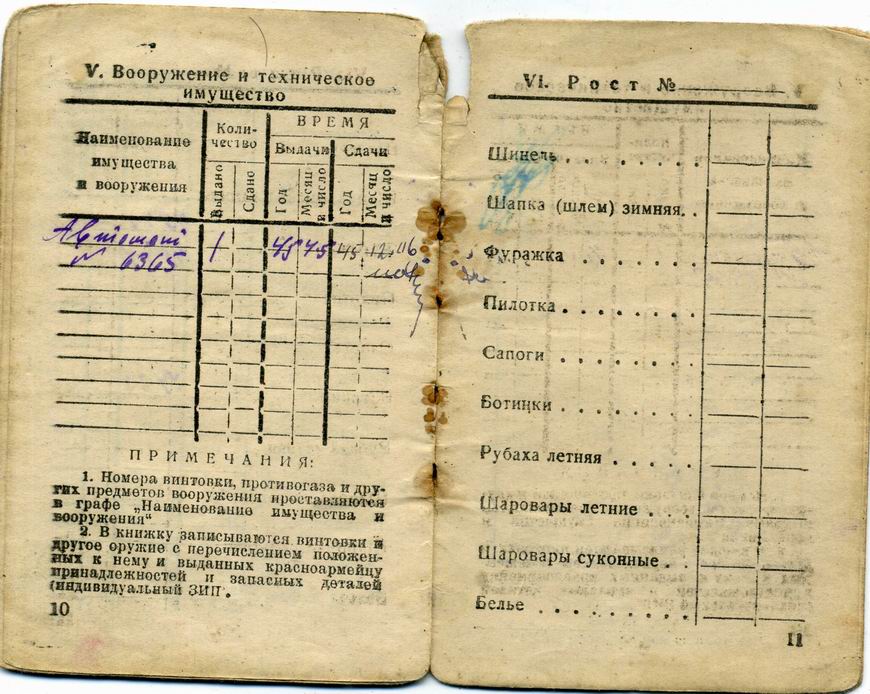 V. Вооружение и техническое
имущество
Наименование
имущества
и вооружения
Коли-
чество
ВРЕМЯ
Выдачи
Сдачи
Выдано
Сдано
Год
Месяц
и число
Год
Месяц
и число
Автомат 1 45
№ 6365
ПРИМЕЧАНИЯ:
1. Номера винтовки, противогаза и дру-
гих предметов вооружения проставляются
в графе „Наименование имущества и
вооружения“
2. В книжку записываются винтовки и
другое оружие с перечислением положен-
ных к нему и выданных красноармейцу
принадлежностей и запасных деталей
(индивидуальный ЗИП).
10
VI. Рост №
Шинель
Шапка (шлем) зимняя
Фуражка
Пилотка
Сапоги
Ботинки
Рубаха летняя
Шаровары летние
Шаровары суконные
Белье
11